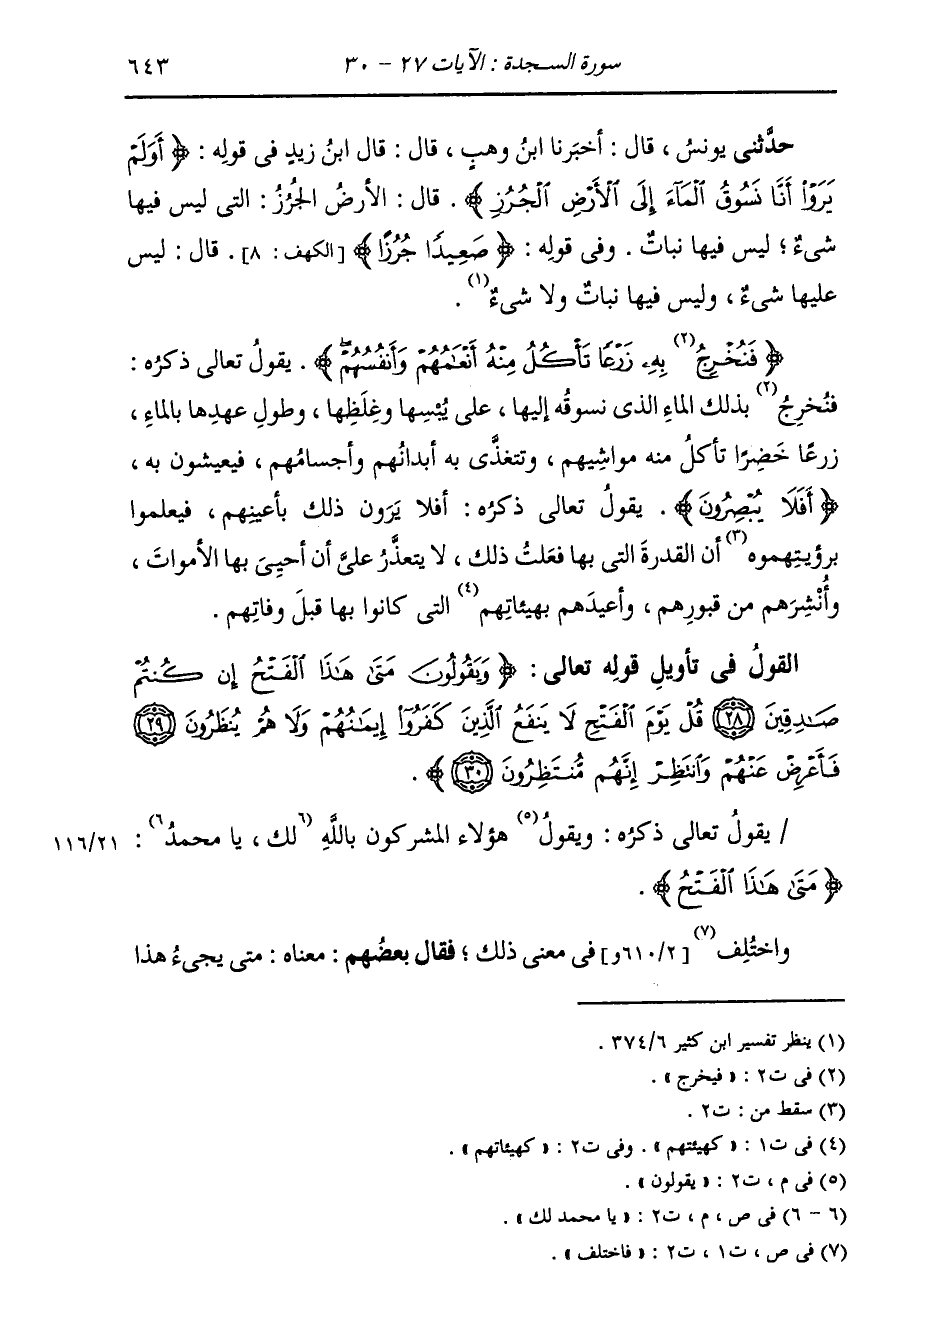 سورة السجدة : الآيات ٢٧ - ٣٠ ٦٤٣
حدَّثنى يونسُ ، قال : أخبَرنا ابنُ وهبٍ ، قال : قال ابنُ زيدٍ فى قولِه : ﴿ أَوَلَمْ
يَرَوْا۟ أَنَّا نَسُوقُ ٱلْمَآءَ إِلَى ٱلْأَرْضِ ٱلْجُرُزِ ﴾ . قال : الأرضُ الجُرُزُ : التى ليس فيها
شىءٌ ؛ ليس فيها نباتٌ . وفى قولِه : ﴿ صَعِيدًا جُرُزًا ﴾ [الكهف : ٨] . قال : ليس
عليها شىءٌ ، وليس فيها نباتٌ ولا شىءٌ(١) .
﴿ فَنُخْرِجُ(٢) بِهِۦ زَرْعًا تَأْكُلُ مِنْهُ أَنْعَٰمُهُمْ وَأَنفُسُهُمْۖ ﴾ . يقولُ تعالى ذكرُه :
فنُخرِجُ(٢) بذلك الماءِ الذى نسوقُه إليها ، على يُبْسِها وغِلَظِها ، وطولِ عهدِها بالماءِ ،
زرعًا خَضِرًا تأكلُ منه مواشِيهم ، وتتغذَّى به أبدانُهم وأجسامُهم ، فيعيشون به ،
﴿ أَفَلَا يُبْصِرُونَ ﴾ . يقولُ تعالى ذكرُه : أفلا يَرَون ذلك بأعينِهم ، فيعلموا
برؤيتِهموه(٣) أن القدرةَ التى بها فعَلتُ ذلك ، لا يتعذَّرُ علىَّ أن أحيِىَ بها الأمواتَ ،
وأُنْشِرَهم من قبورِهم ، وأعيدَهم بهيئاتِهم(٤) التى كانوا بها قبلَ وفاتِهم .
القولُ فى تأويلِ قولِه تعالى : ﴿ وَيَقُولُونَ مَتَىٰ هَٰذَا ٱلْفَتْحُ إِن كُنتُمْ
صَٰدِقِينَ ٢٨ قُلْ يَوْمَ ٱلْفَتْحِ لَا يَنفَعُ ٱلَّذِينَ كَفَرُوٓا۟ إِيمَٰنُهُمْ وَلَا هُمْ يُنظَرُونَ ٢٩
فَأَعْرِضْ عَنْهُمْ وَٱنتَظِرْ إِنَّهُم مُّنتَظِرُونَ ٣٠ ﴾ .
/ يقولُ تعالى ذكرُه : ويقولُ(٥) هؤلاء المشركون باللَّهِ (٦لك ، يا محمدُ٦) : ١١٦/٢١
﴿ مَتَىٰ هَٰذَا ٱلْفَتْحُ ﴾ .
واختُلِف(٧) [٦١٠/٢و] فى معنى ذلك ؛ فقال بعضُهم : معناه : متى يجىءُ هذا
(١) ينظر تفسير ابن كثير ٣٧٤/٦ .
(٢) فى ت٢ : « فيخرج » .
(٣) سقط من : ت٢ .
(٤) فى ت١ : « كهيئتهم » . وفى ت٢ : « كهيئاتهم » .
(٥) فى م ، ت٢ : « يقولون » .
(٦ - ٦) فى ص ، م ، ت٢ : « يا محمد لك » .
(٧) فى ص ، ت١ ، ت٢ : « فاختلف » .